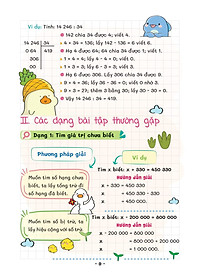 Ví dụ: Tính: 14 246 : 34
142 chia 34 được 4; viết 4.
14 246 34
4 × 34 = 136; lấy 142 - 136 = 6 viết 6.
064 419
Hạ 4 được 64; 64 chia 34 được 1; viết 1.
306
1 × 4 = 4; lấy 4 - 4 = 0; viết 0.
00
1 × 3 = 3; lấy 6 - 3 = 3; viết 3.
Hạ 6 được 306. Lấy 306 chia 34 được 9.
Vậy 14 246 : 34 = 419.
II. Các dạng bài tập thường gặp
Dạng 1: Tìm giá trị chưa biết
Phương pháp giải
Ví dụ
Tìm x biết: x - 330 = 450 330
Hướng dẫn giải
Muốn tìm số hạng chưa
biết, ta lấy tổng trừ đi
số hạng đã biết.
Tìm x biết: x - 200 000 = 800 000
Hướng dẫn giải
Muốn tìm số bị trừ, ta
lấy hiệu cộng với số trừ.
x - 200 000 = 800 000
x = 800 000 + 200 000
x = 1 000 000